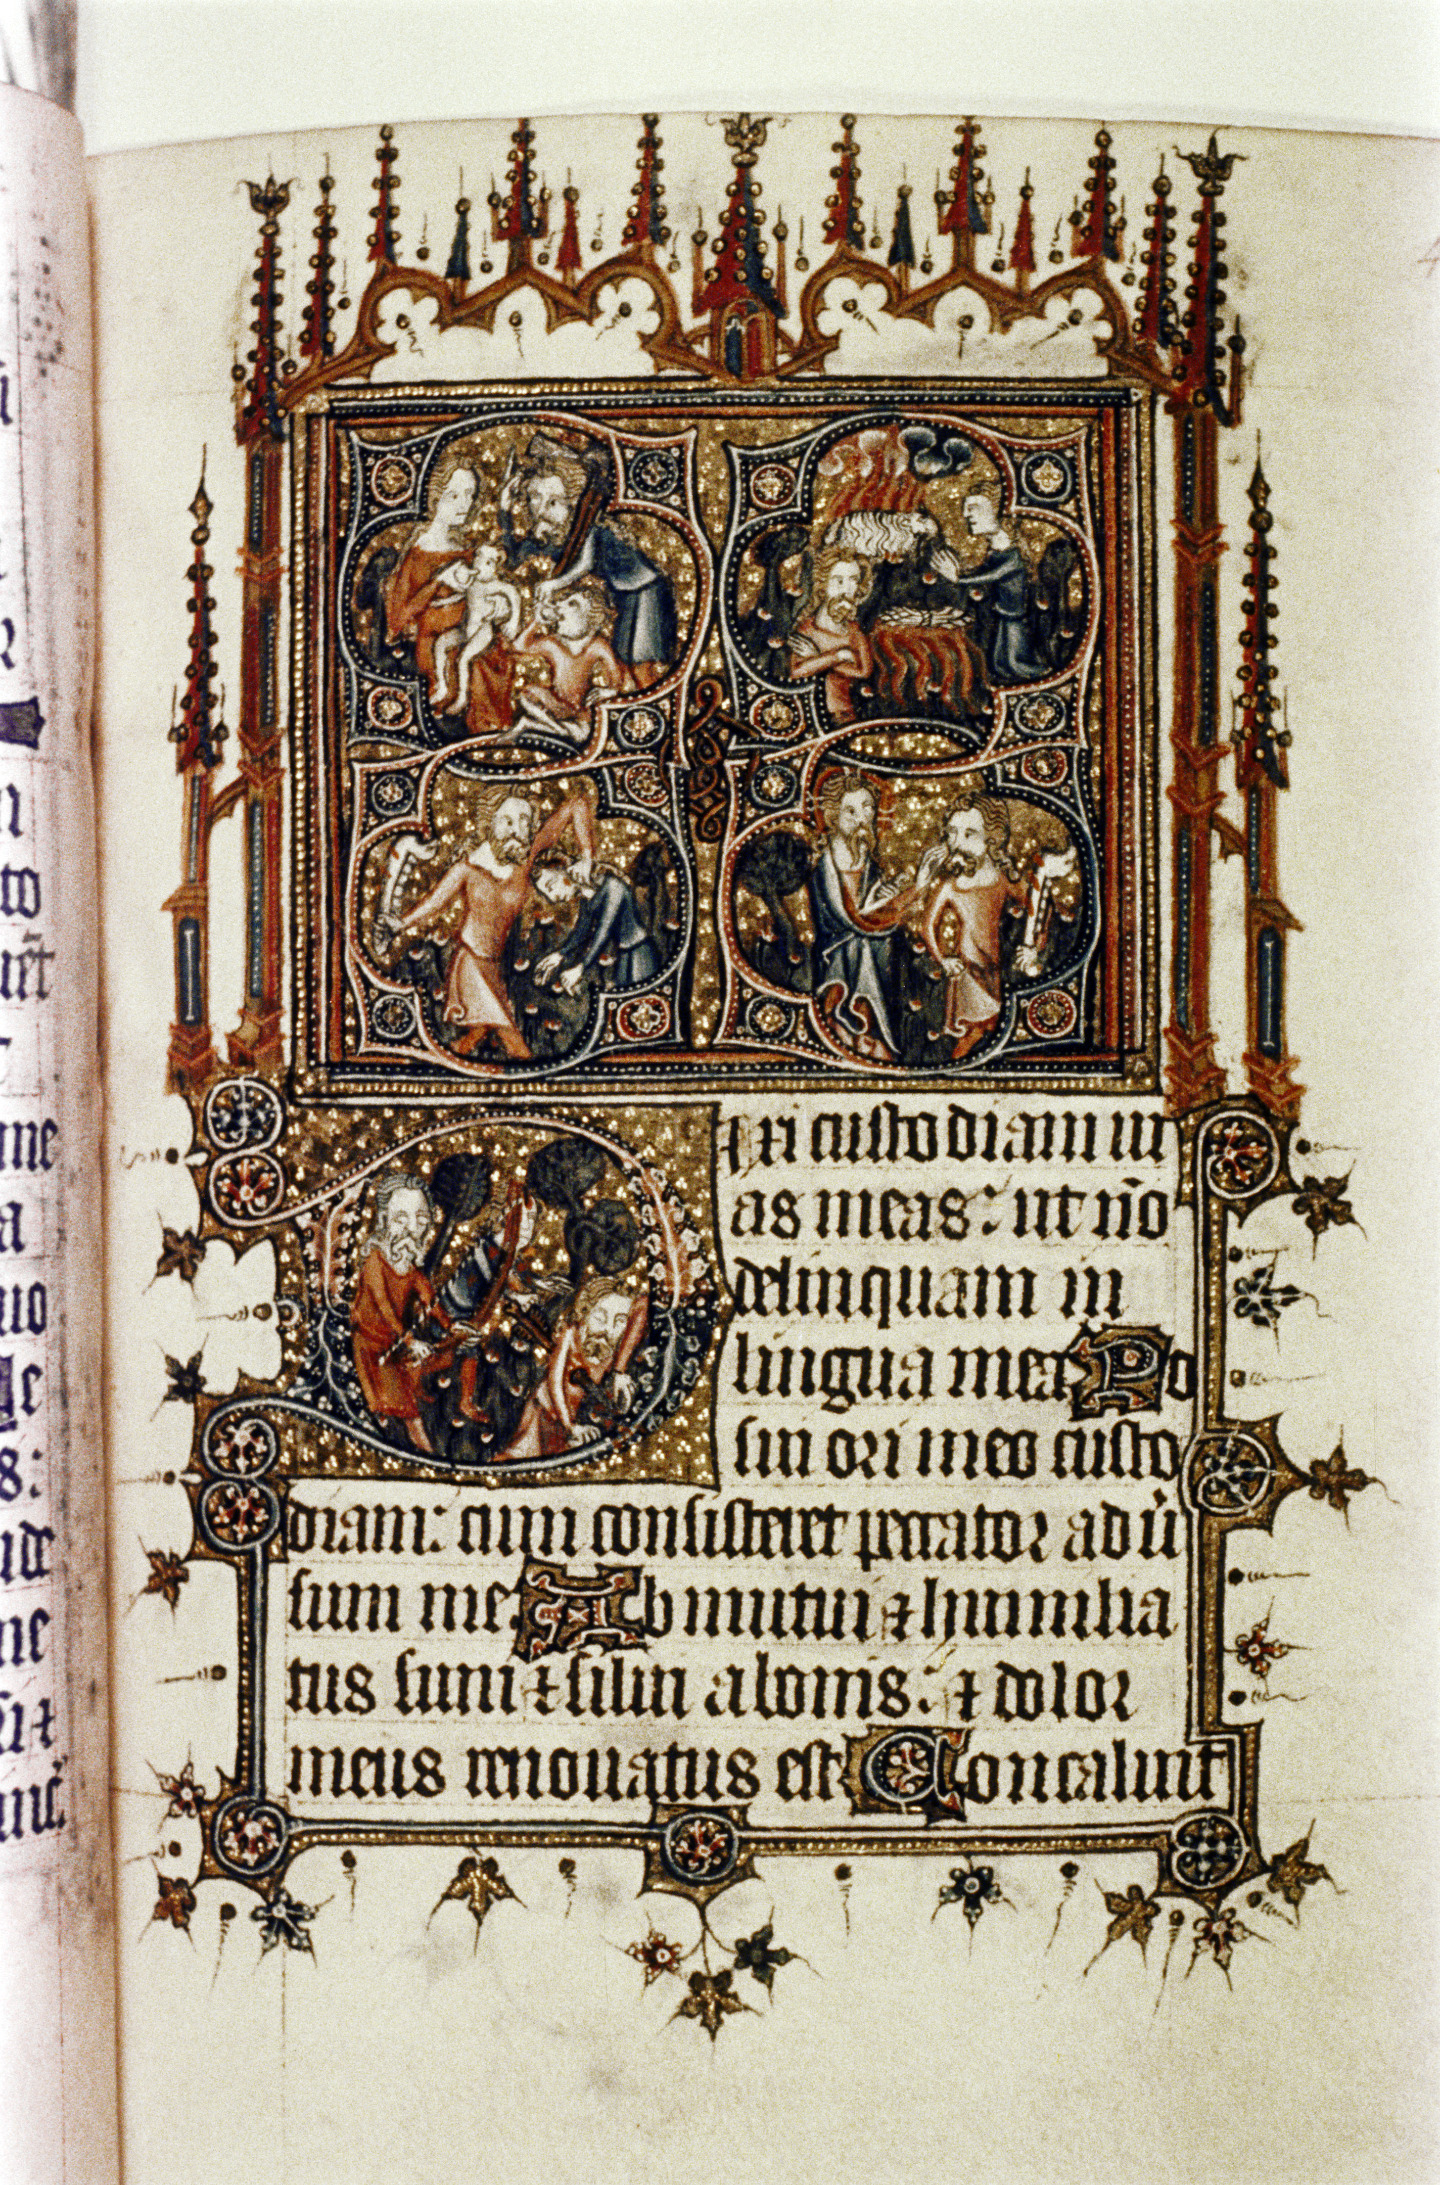 Dixi custodiam ui
as meas: ut nō
delinquam in
lingua mea Po
sui ori meo custo
diam: cum consisteret peccator adu̾
sum me. Obmutui ⁊ humilia
tus sum ⁊ silui a bonis: ⁊ dolor
meus renouatus est Concaluit